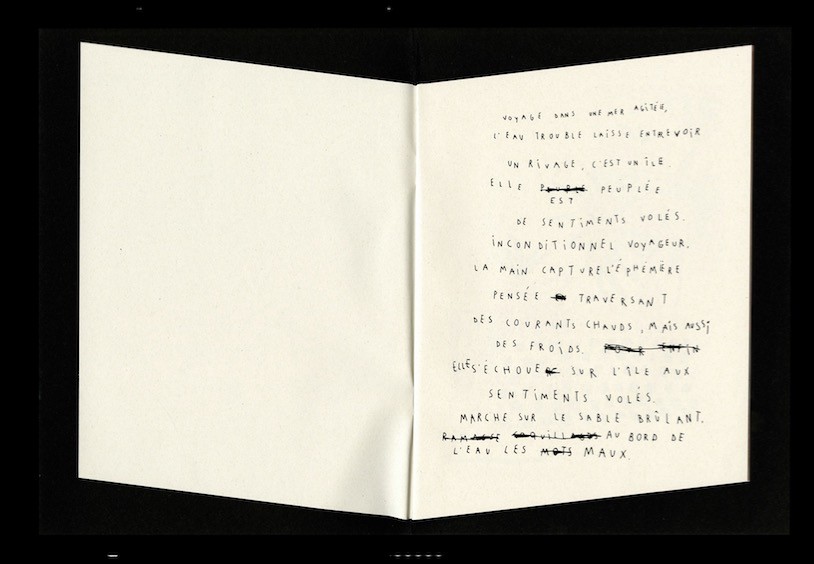 VOYAGE DANS UNE MER AGITÉE,
L'EAU TROUBLE LAISSE ENTREVOIR
UN RIVAGE, C'EST UN ÎLE.
ELLE PEUPLÉE
EST
DE SENTIMENTS VOLÉS.
INCONDITIONNEL VOYAGEUR.
LA MAIN CAPTURE L'ÉPHÉMÈRE
PENSÉE EN TRAVERSANT
DES COURANTS CHAUDS, MAIS AUSSI
DES FROIDS. POUR ENFIN
ELLE S'ÉCHOUE SUR L'ÎLE AUX
SENTIMENTS VOLÉS.
MARCHE SUR LE SABLE BRÛLANT.
RAMASSE COQUILLAGES AU BORD DE
L'EAU LES MOTS MAUX.